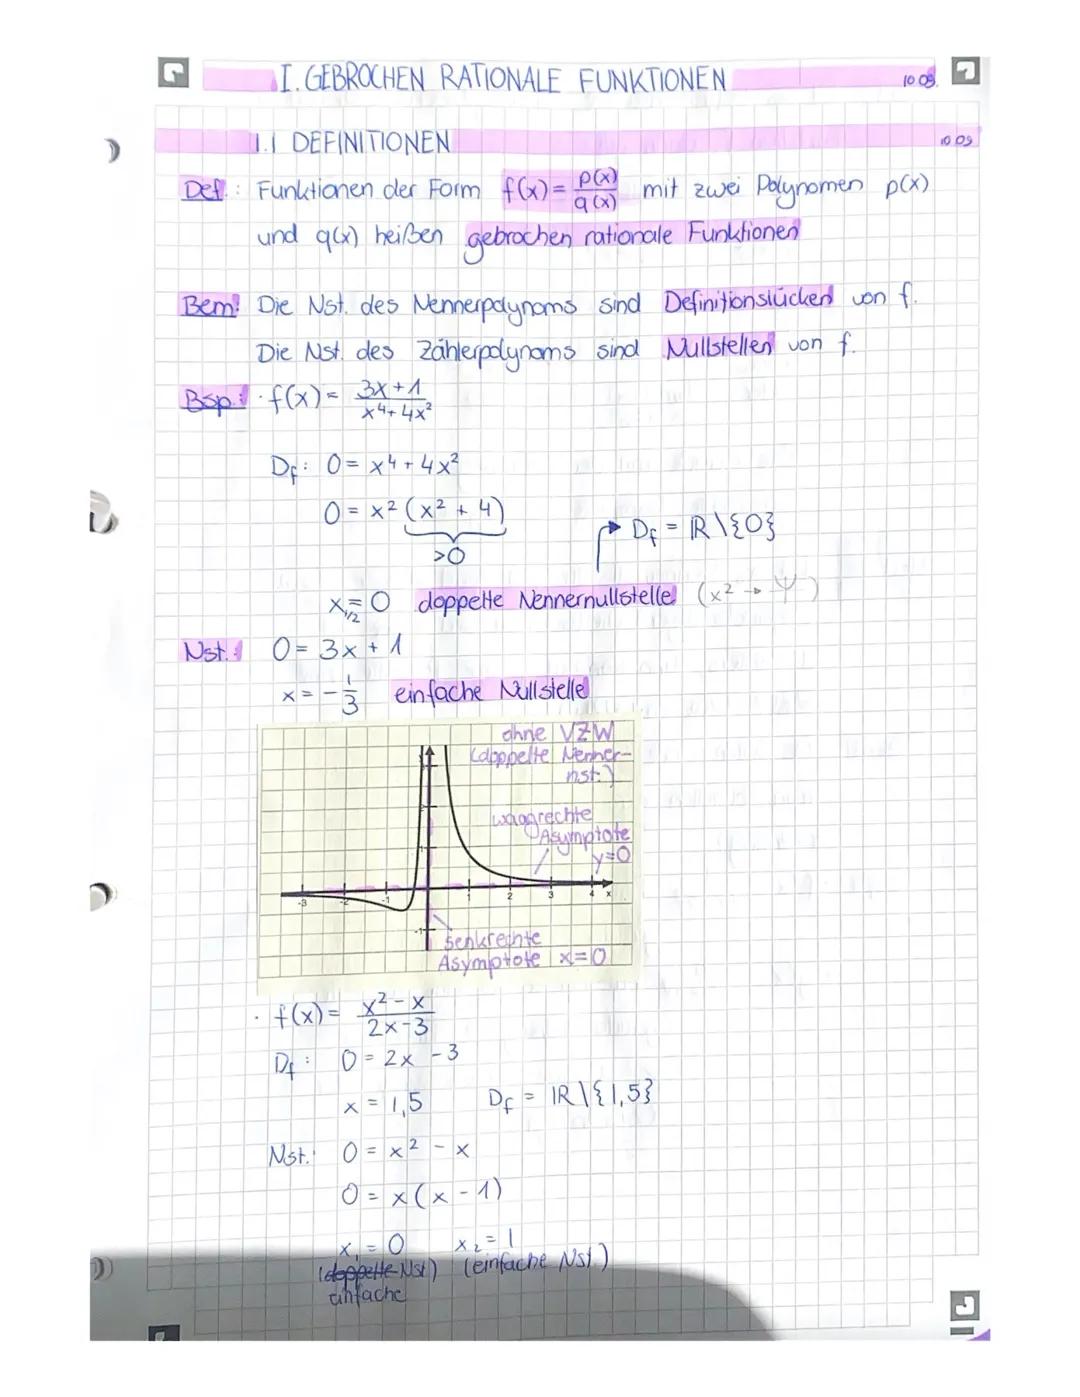 I. GEBROCHEN RATIONALE FUNKTIONEN 10.09.
1.1 DEFINITIONEN 10.09
Def.: Funktionen der Form f(x) = p(x)/q(x) mit zwei Polynomen p(x)
und q(x) heißen gebrochen rationale Funktionen
Bem: Die Nst. des Nennerpolynoms sind Definitionslücken von f.
Die Nst. des Zählerpolynoms sind Nullstellen von f.
Bsp.: · f(x) = 3x+1/x⁴+4x²
Df: 0 = x⁴ + 4x²
0 = x² (x² + 4)
>0
Df = ℝ\{0}
x1/2 = 0 doppelte Nennernullstelle (x² → )
Nst.: 0 = 3x + 1
x = -1/3 einfache Nullstelle
ohne VZW
(doppelte Nenner-
nst.)
waagrechte
Asymptote
y=0
-3 -2 -1 1 2 3 4 x
-1
senkrechte
Asymptote x=0
· f(x) = x²-x/2x-3
Df: 0 = 2x - 3
x = 1,5 Df = ℝ\{1,5}
Nst.: 0 = x² - x
0 = x(x - 1)
x1 = 0 x2 = 1
(doppelte Nst) (einfache Nst)
einfache